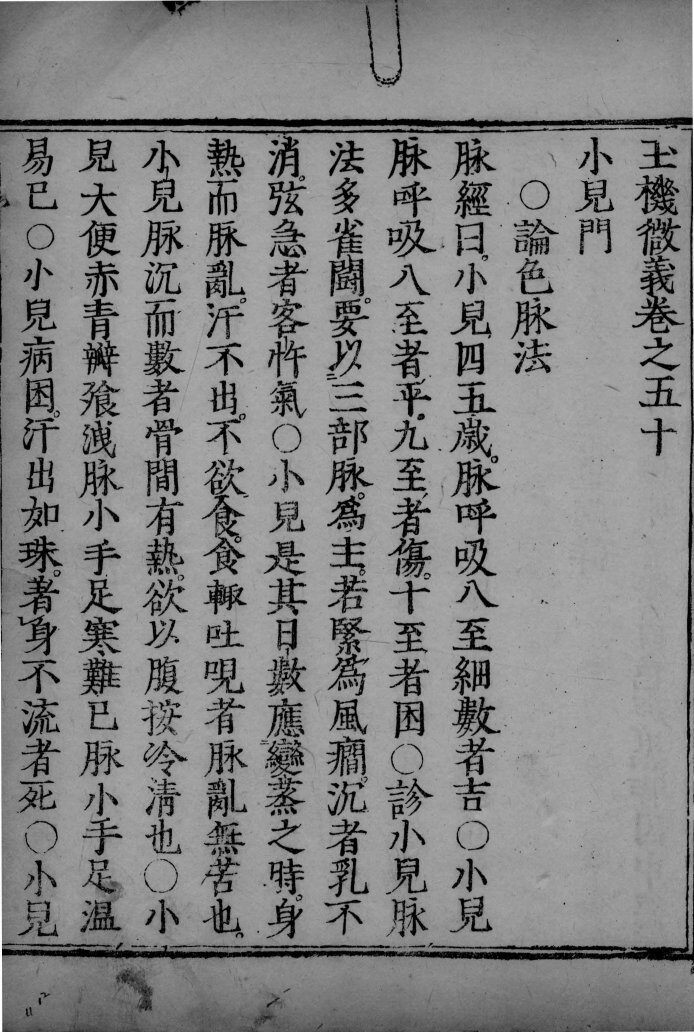 玉機微義卷之五十
小兒門
○論色脉法
脉經曰。小兒四五歲。脉呼吸八至細數者吉○小兒
脉呼吸八至者平。九至者傷。十至者困○診小兒脉
法多雀鬬。要以三部脉。爲主。若緊爲風癇。沉者乳不
消。弦急者客忤氣○小兒是其日數應變蒸之時。身
熱而脉亂。汗不出。不欲食。食輙吐哯者脉亂無苦也。
小兒脉沉而數者骨間有熱。欲以腹按冷淸也○小
兒大便赤青瓣飱洩脉小手足寒難已脉小手足溫
易已○小兒病困。汗出如珠。著身不流者死○小兒